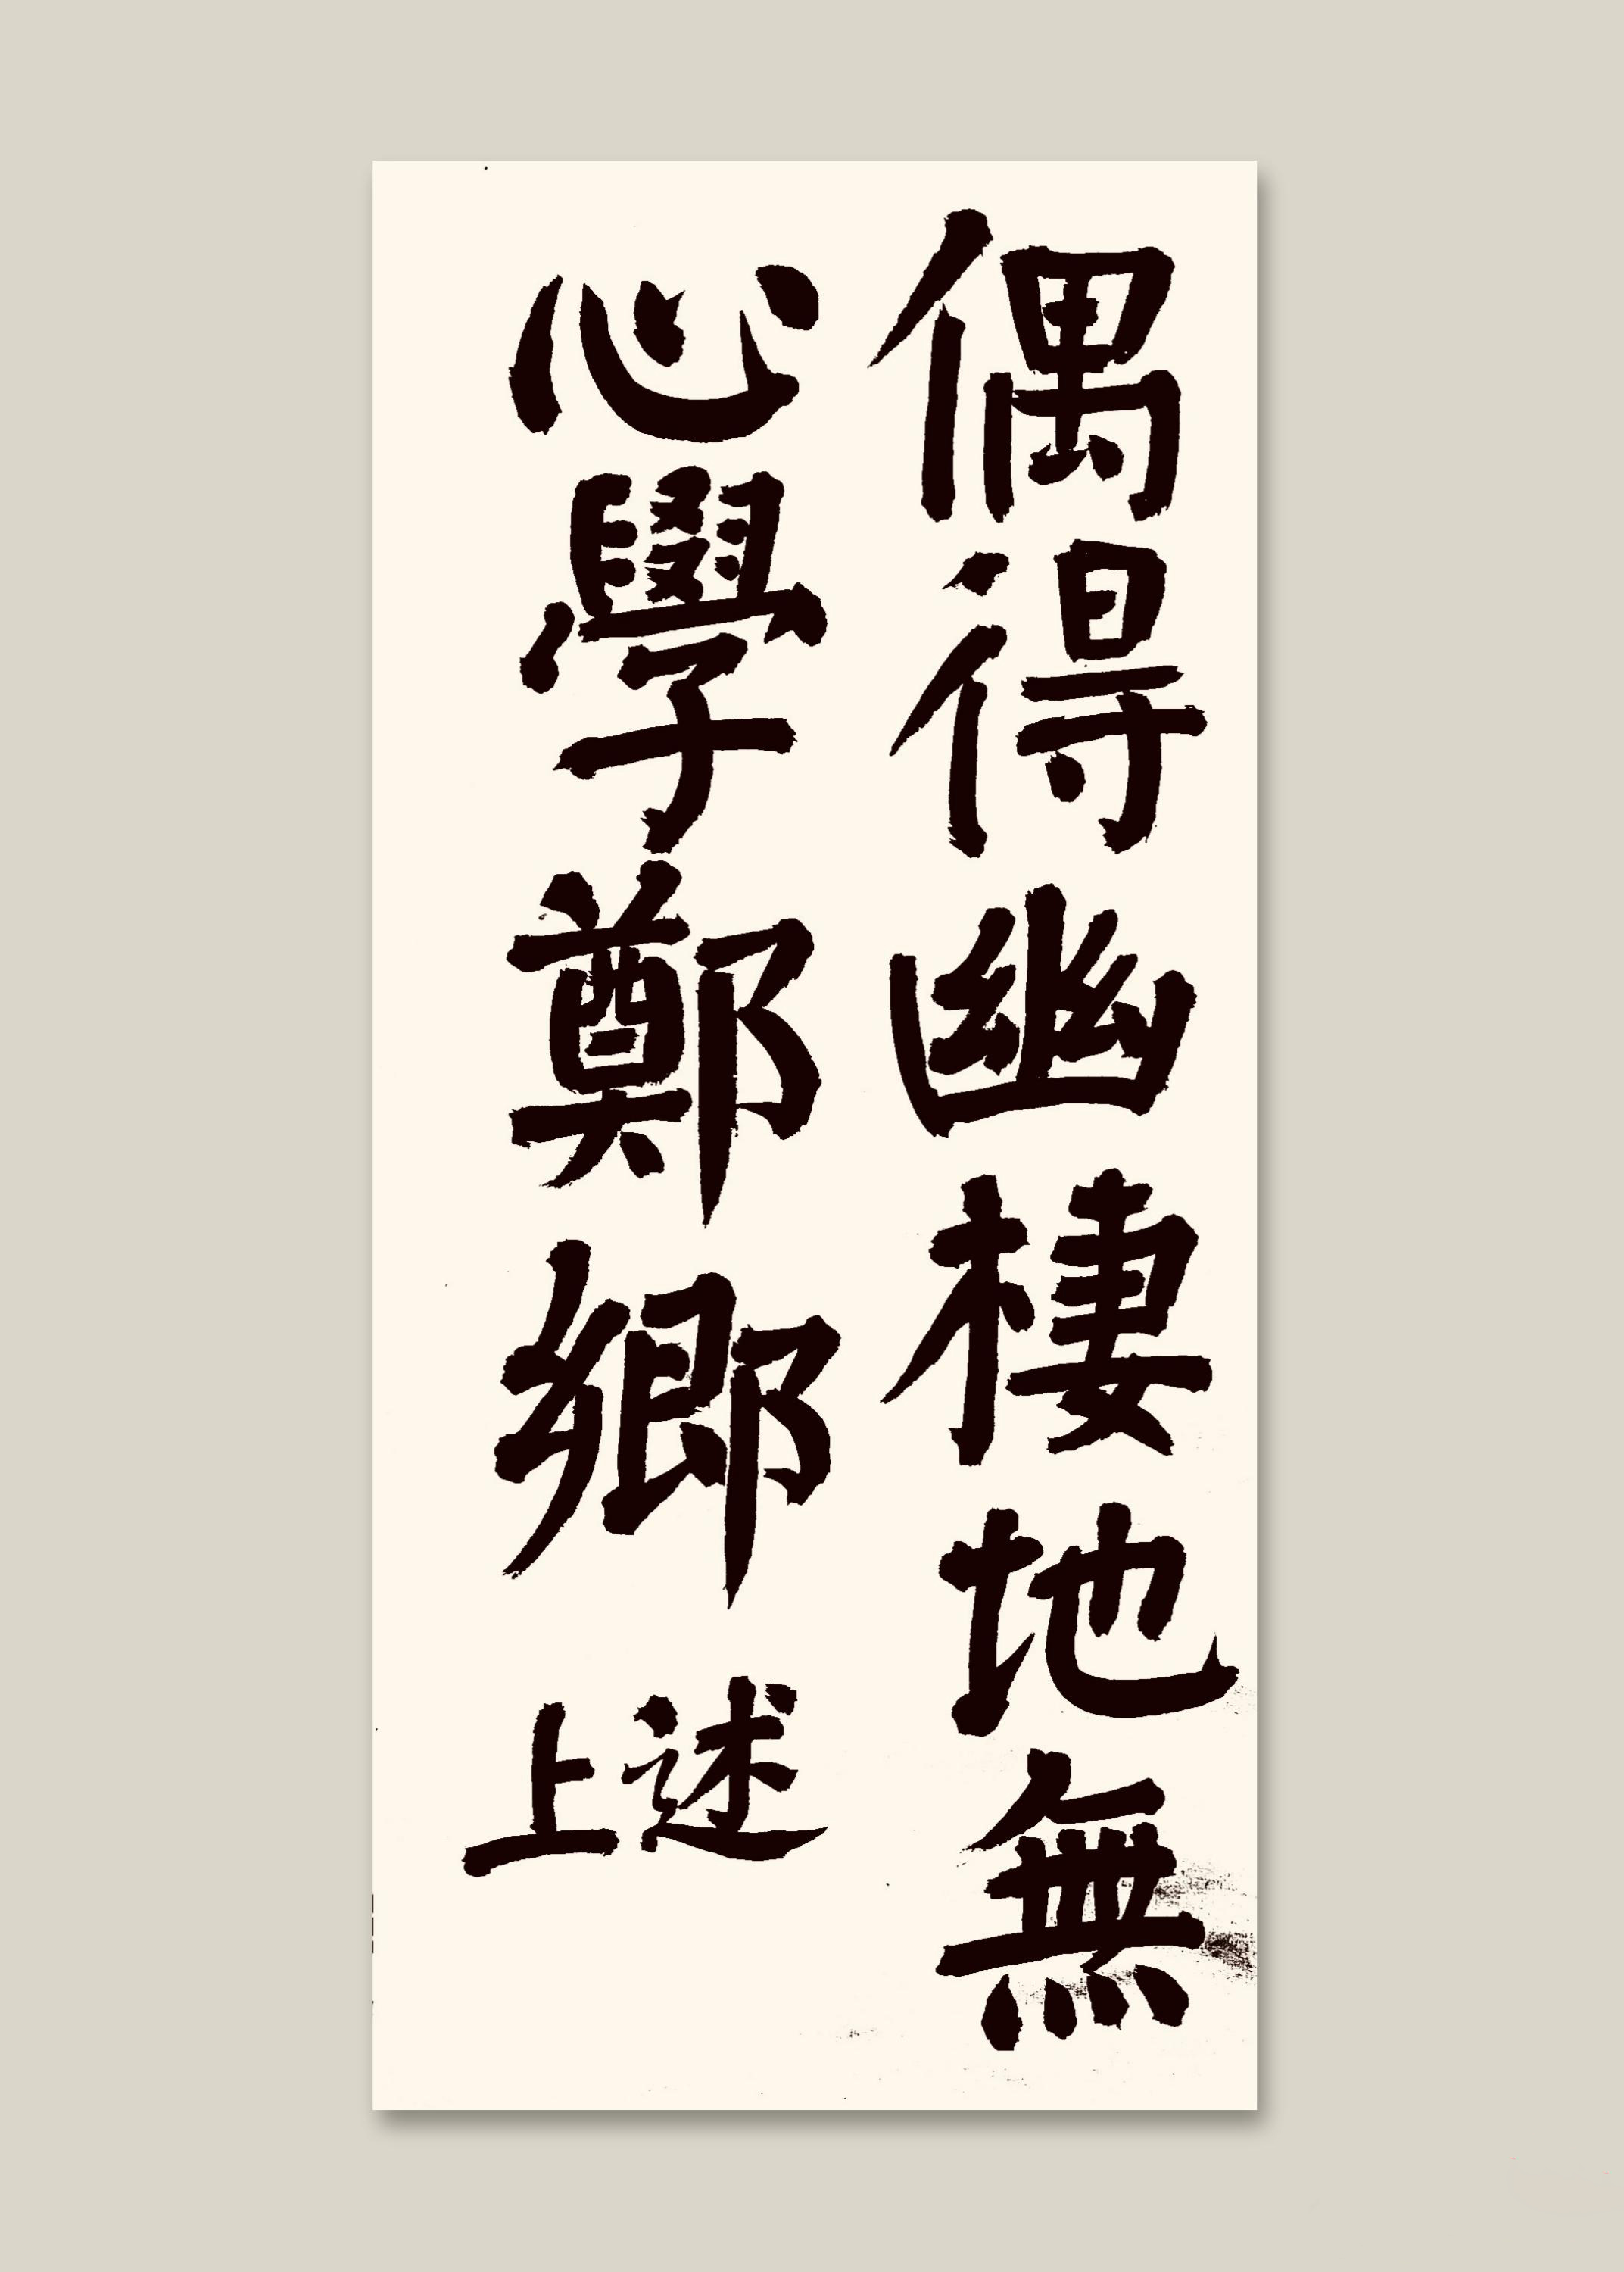 偶得幽棲地無
心學鄭鄉
述上